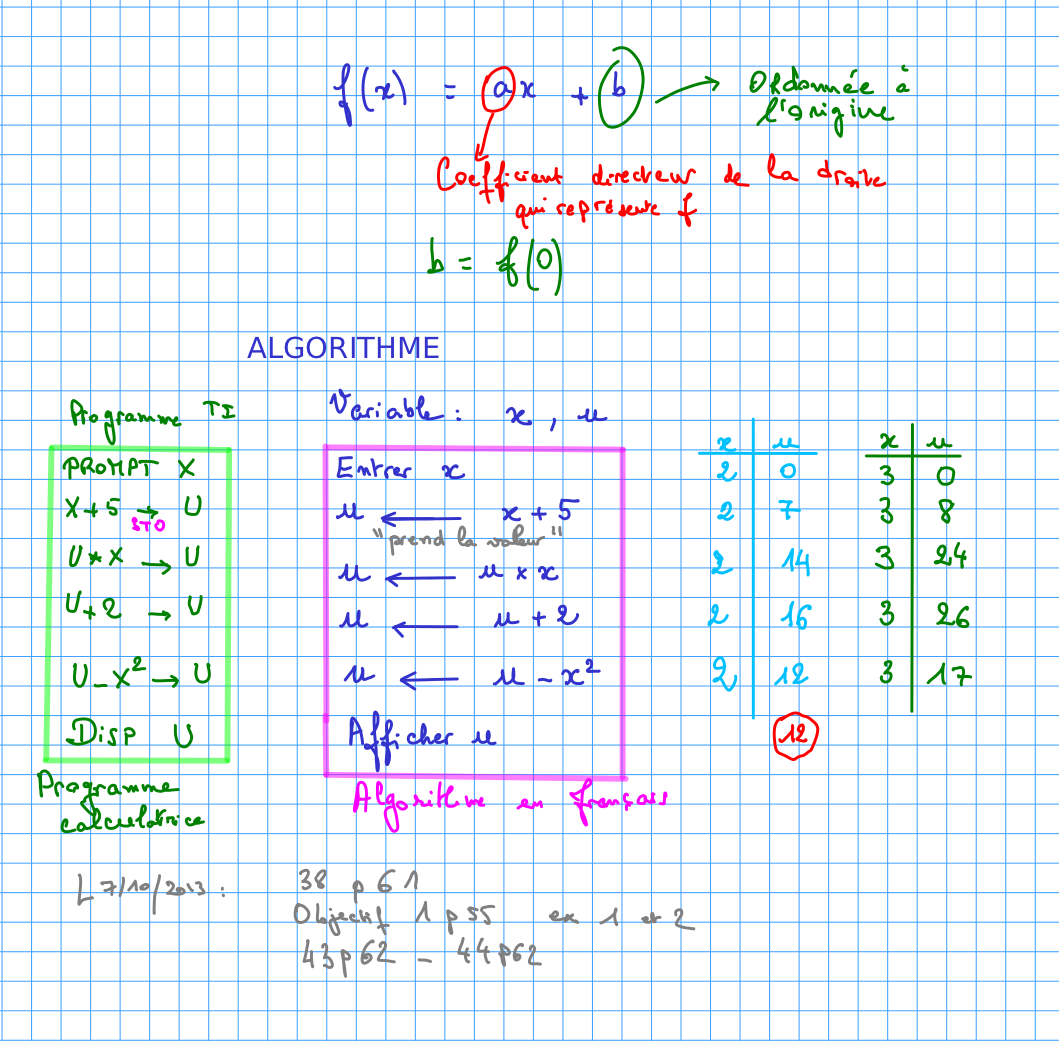 f(x) = ax + b → Ordonnée à
l'origine
Coefficient directeur de la droite
qui représente f
b = f(0)
ALGORITHME
Programme TI
PROMPT X
X+5 → U
STO
U*X → U
U+2 → U
U-X² → U
Disp U
Programme
calculatrice
Variable : x , u
Entrer x
u ← x + 5
"prend la valeur"
u ← u × x
u ← u + 2
u ← u - x²
Afficher u
Algorithme en français
x u
2 0
2 7
2 14
2 16
2 12
12
x u
3 0
3 8
3 24
3 26
3 17
L 7/10/2013 : 38 p 61
Objectif 1 p 55 ex 1 et 2
43p62 - 44p62